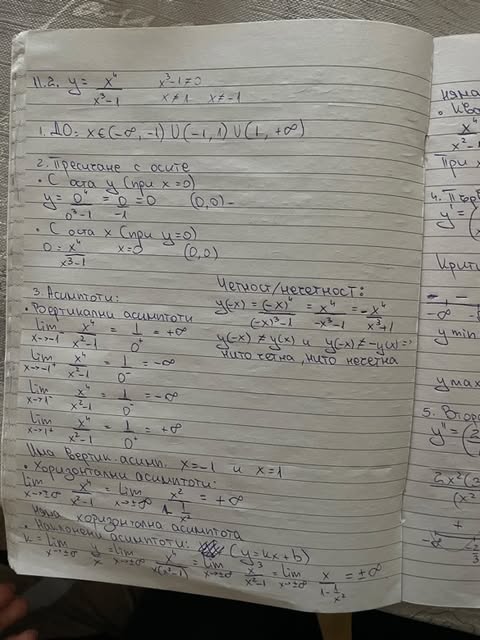 11.2. y = x⁴/(x³-1)   x³-1≠0
x≠1   x≠-1
1. ДО: x∈(-∞,-1)∪(-1,1)∪(1,+∞)
2. Пресичане с осите
• С оста y (при x=0)
y = 0⁴/(0³-1) = 0/-1 = 0   (0,0)
• С оста x (при y=0)
0 = x⁴/(x³-1)   x=0   (0,0)
Четност/нечетност:
y(-x) = (-x)⁴/((-x)³-1) = x⁴/(-x³-1) = -x⁴/(x³+1)
y(-x) ≠ y(x) и y(-x) ≠ -y(x) =>
нито четна, нито нечетна
3. Асимптоти:
• Вертикални асимптоти
lim x→-1⁻ x⁴/(x²-1) = 1/0⁺ = +∞
lim x→-1⁺ x⁴/(x²-1) = 1/0⁻ = -∞
lim x→1⁻ x⁴/(x²-1) = 1/0⁻ = -∞
lim x→1⁺ x⁴/(x²-1) = 1/0⁺ = +∞
Има вертик. асимп. x=-1 и x=1
• Хоризонтални асимптоти:
lim x→±∞ x⁴/(x²-1) = lim x→±∞ x²/(1-1/x²) = +∞
няма хоризонтална асимптота
• Наклонени асимптоти: (y=kx+b)
k = lim x→±∞ y/x = lim x→±∞ x⁴/(x(x²-1)) = lim x→±∞ x³/(x²-1) = lim x→±∞ x/(1-1/x²) = ±∞
няма
• Ква
x⁴
x²-1
При x
4. Първ
y' = (
Крити
-∞
y min
y max
5. Второ
y'' = (2
2x²(
(x²
+
-∞